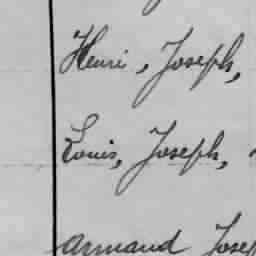 Henri, Joseph,
Louis, Joseph,
Armand Josep